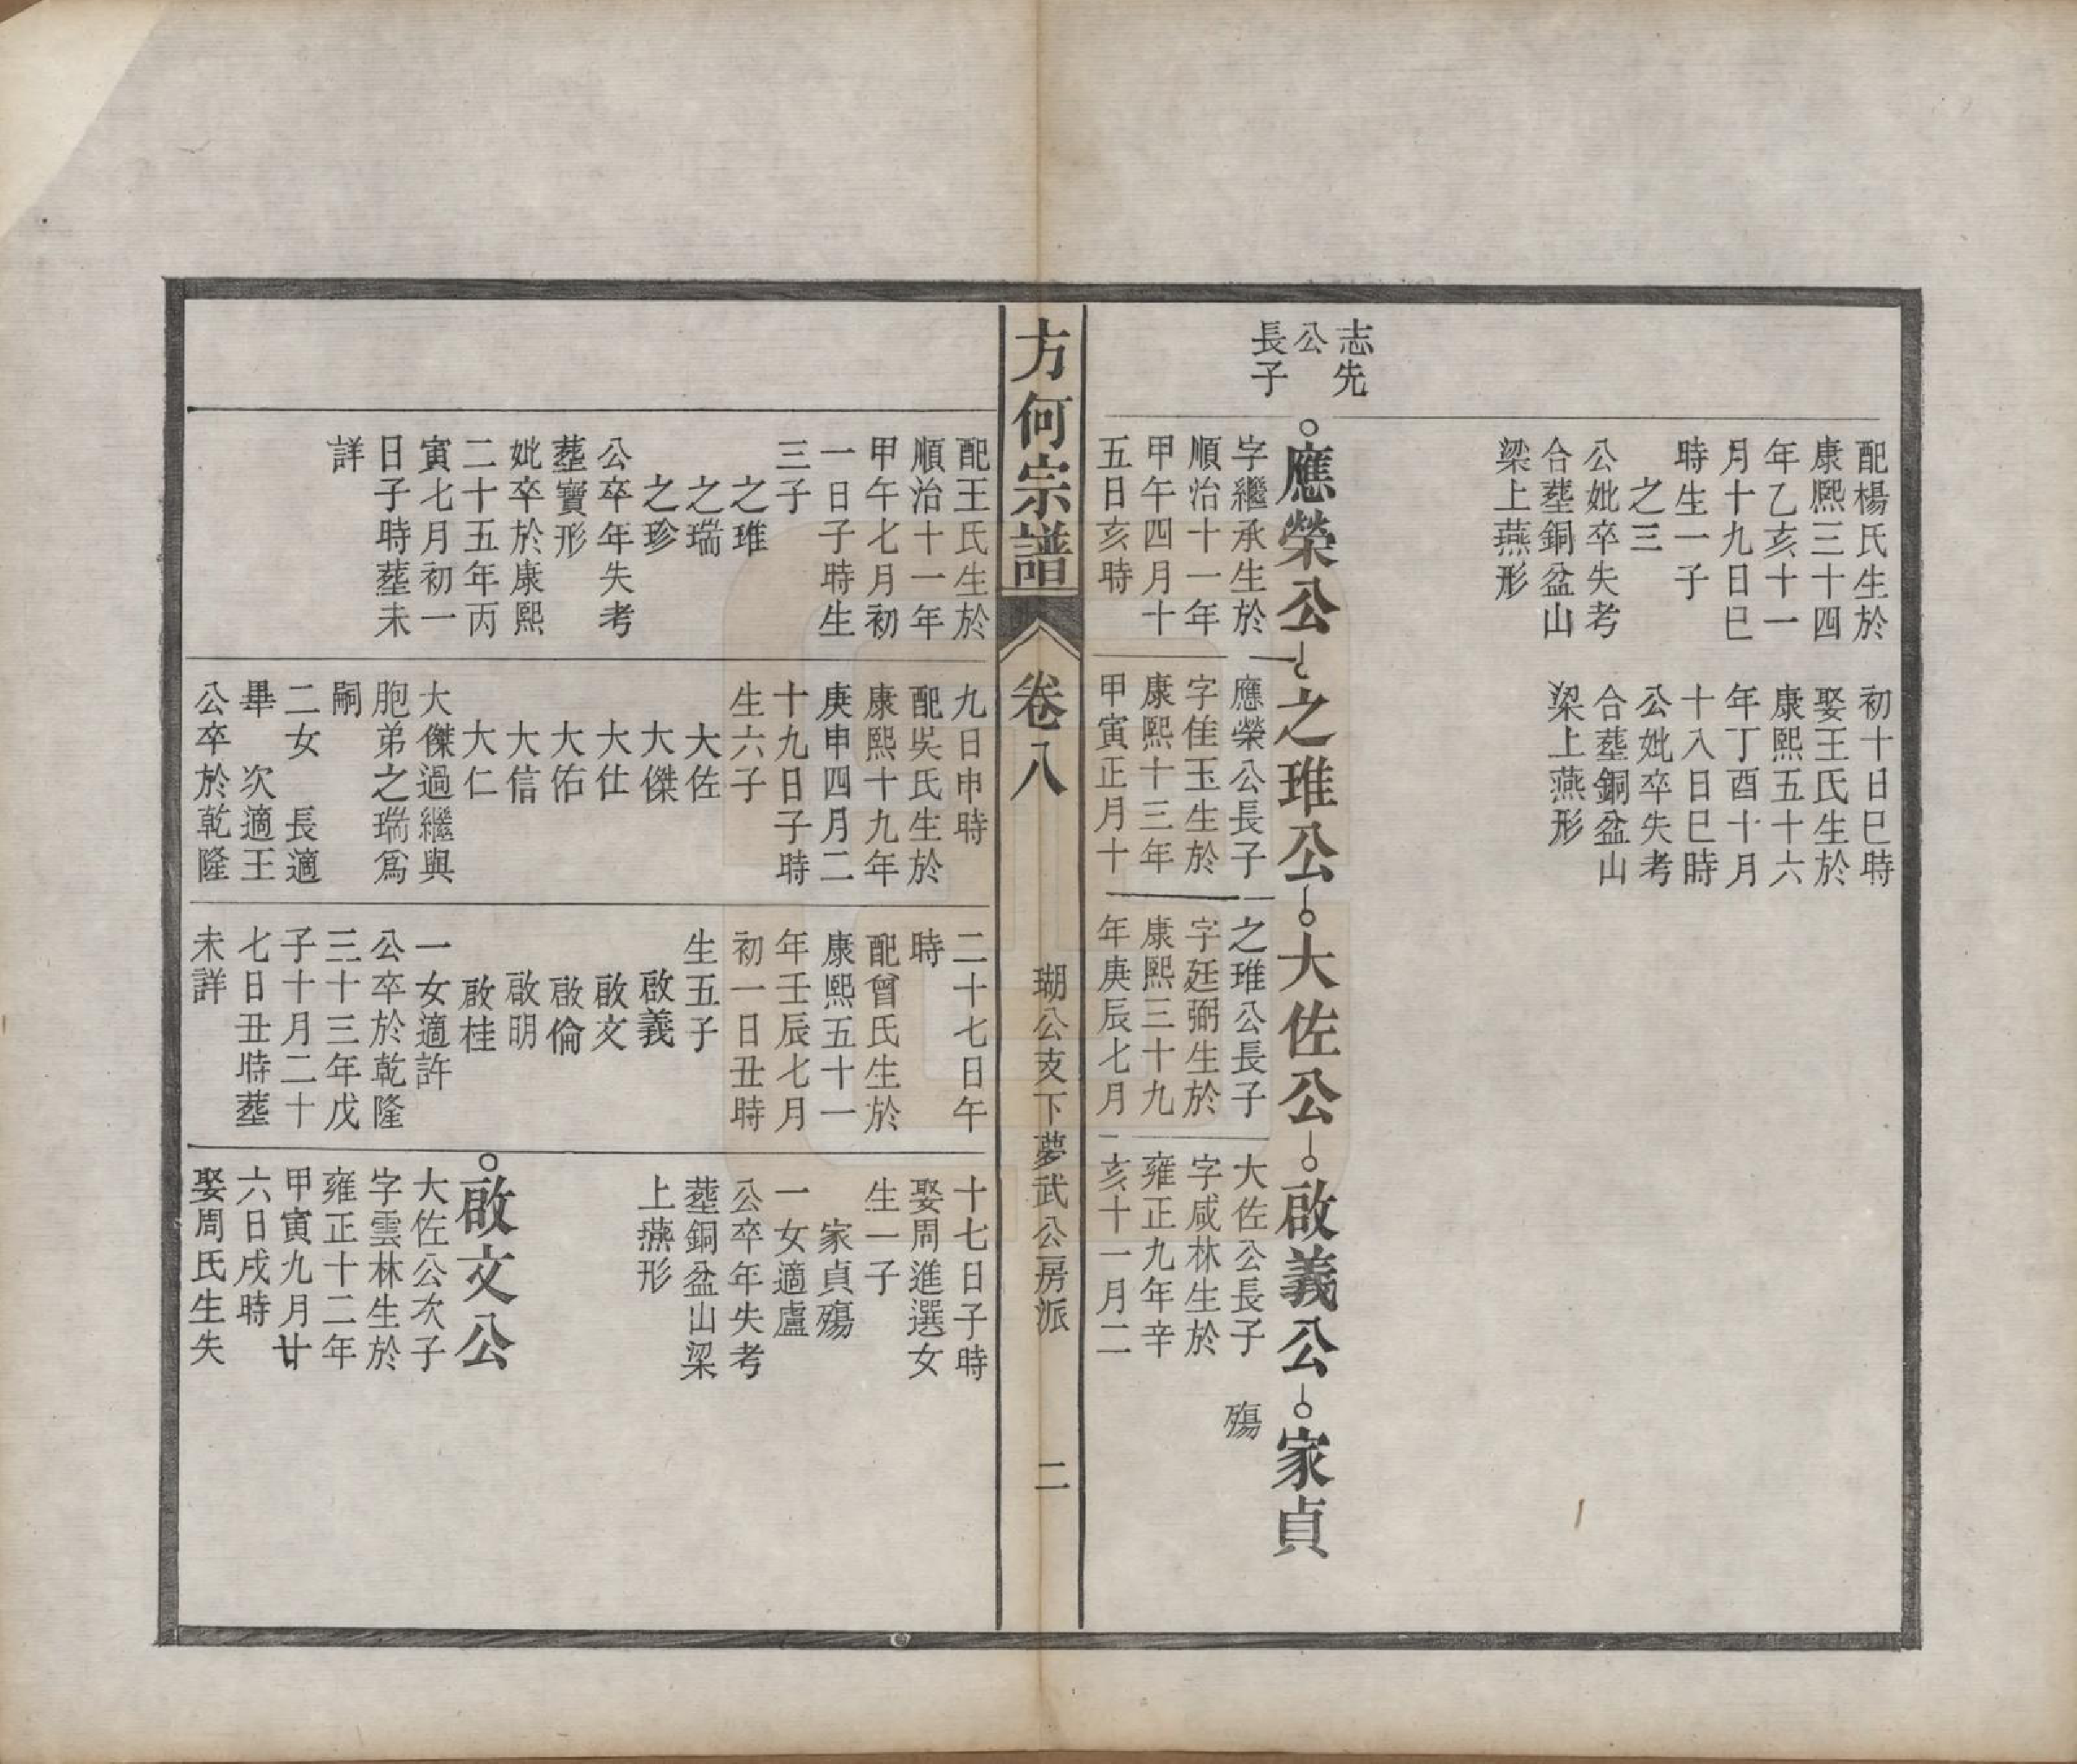 配楊氏生於
康熙三十四
年乙亥十一
月十九日巳
時生一子
之三
公妣卒失考
合塟銅盆山
梁上燕形
初十日巳時
娶王氏生於
康熙五十六
年丁酉十月
十八日巳時
公妣卒失考
合塟銅盆山
梁上燕形
志先
公
長子
應榮公
之琟公
大佐公
啟義公
家貞
字繼承生於
順治十一年
甲午四月十
五日亥時
應榮公長子
字隹玉生於
康熙十三年
甲寅正月十
之琟公長子
字廷弼生於
康熙三十九
年庚辰七月
大佐公長子
字咸林生於
雍正九年辛
亥十一月二
殤
方何宗譜
卷八
瑚公支下夢武公房派
二
配王氏生於
順治十一年
甲午七月初
一日子時生
三子
之琟
之瑞
之珍
公卒年失考
塟寶形
妣卒於康熙
二十五年丙
寅七月初一
日子時塟未
詳
九日申時
配吳氏生於
康熙十九年
庚申四月二
十九日子時
生六子
大佐
大傑
大仕
大佑
大信
大仁
大傑過繼與
胞弟之瑞爲
嗣
二女 長適
畢 次適王
公卒於乾隆
二十七日午
時
配曾氏生於
康熙五十一
年壬辰七月
初一日丑時
生五子
啟義
啟文
啟倫
啟明
啟桂
一女適許
公卒於乾隆
三十三年戊
子十月二十
七日丑時塟
未詳
十七日子時
娶周進選女
生一子
家貞殤
一女適盧
公卒年失考
塟銅盆山梁
上燕形
啟文公
大佐公次子
字雲林生於
雍正十二年
甲寅九月廿
六日戌時
娶周氏生失